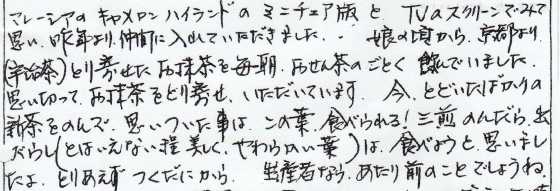 マレーシアの キャメロン ハイランドの ミニチュア版 と、TVのスクリーンでみて
思い、昨年より、仲間に 入れていただきました、・ 娘の頃から、京都より
(宇治茶)とり寄せた お抹茶を毎朝、おせん茶のごとく 飲んでいました。
思い切って、お抹茶をとり寄せ、いただいています。今、とどいたばかりの
新茶をのんで、思いついた事は、この葉、食べられる！三煎 のんだら、出
がらし(とはいえない程 美しく、やわらかい葉)は、食べようと、思いまし
たよ、とりあえず つくだにから、 生産者なら、あたり前のことでしょうね、